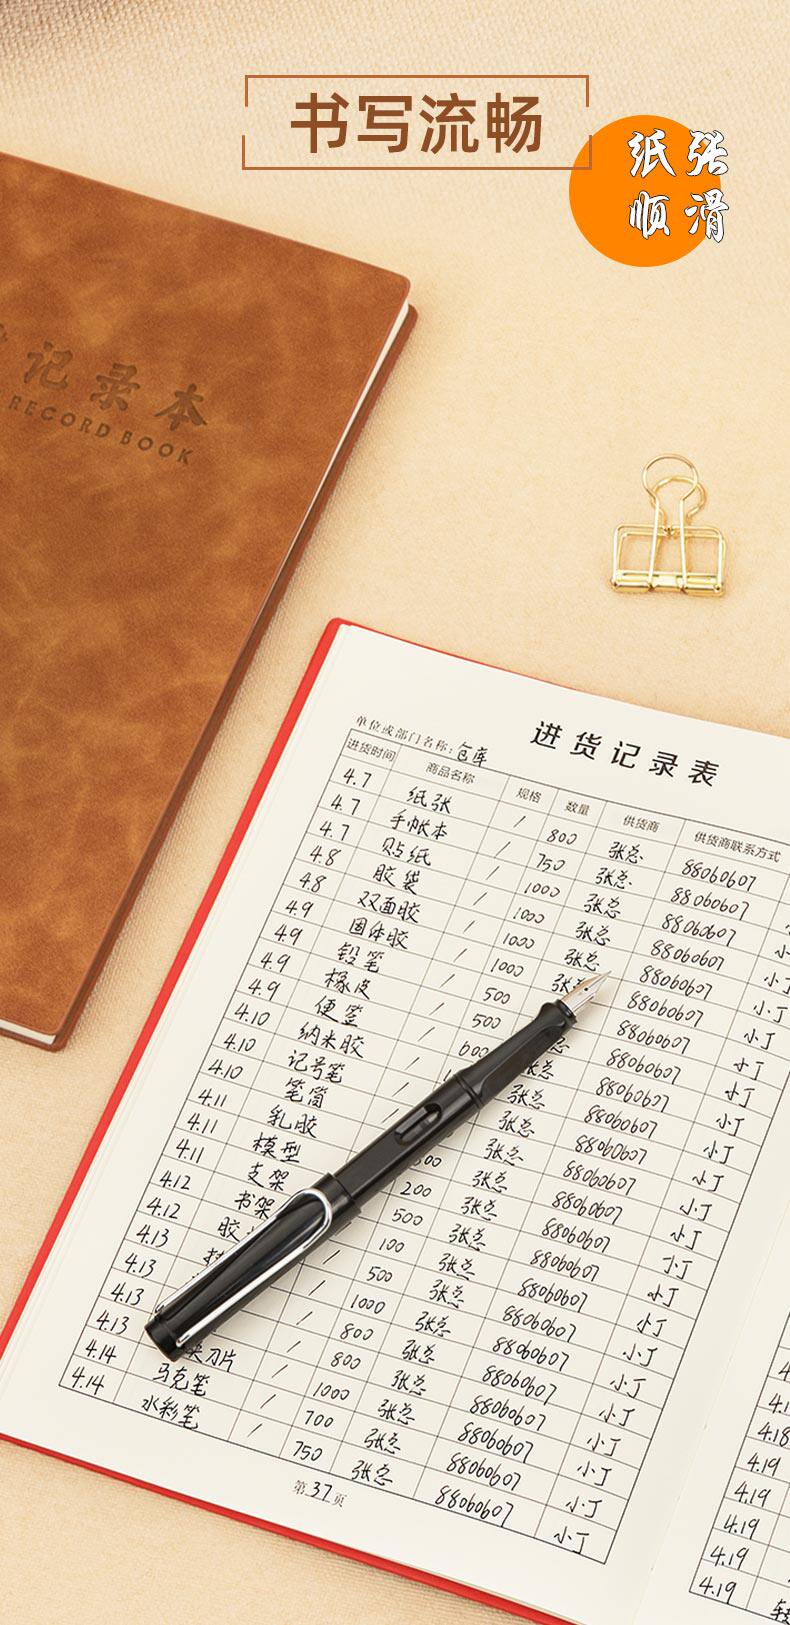 书写流畅
纸张
顺滑
记录本
RECORD BOOK
进货记录表
单位或部门名称：仓库
进货时间 商品名称 规格 数量 供货商 供货商联系方式
4.7 纸张 / 800 张总 88060607
4.7 手帐本 / 750 张总 88060607
4.7 贴纸 / 1000 张总 88060607 小丁
4.8 胶袋 / 1000 张总 88060607 小丁
4.8 双面胶 / 1000 张总 88060607 小丁
4.9 固体胶 / 1000 张总 88060607 小丁
4.9 铅笔 / 500 88060607 小丁
4.9 橡皮 / 500 88060607 小丁
4.9 便签 / 600 张总 88060607 小丁
4.10 纳米胶 / 张总 88060607 小丁
4.10 记号笔 / 张总 88060607 小丁
4.10 笔筒 / 张总 88060607 小丁
4.11 乳胶 张总 88060607 小丁
4.11 模型 200 张总 88060607 小丁
4.11 支架 500 张总 88060607 小丁
4.12 书架 100 张总 88060607 小丁
4.12 胶 / 500 张总 88060607 小丁
4.13 / 1000 张总 88060607 小丁
4.13 / 800 张总 88060607 小丁
4.13 / 800 张总 88060607 小丁
4.13 刀片 / 1000 张总 88060607 小丁
4.14 马克笔 / 700 张总 88060607 小丁
4.14 水彩笔 / 750 张总 88060607 小丁
第37页
4.18
4.19
4.19
4.19
4.19
4.19